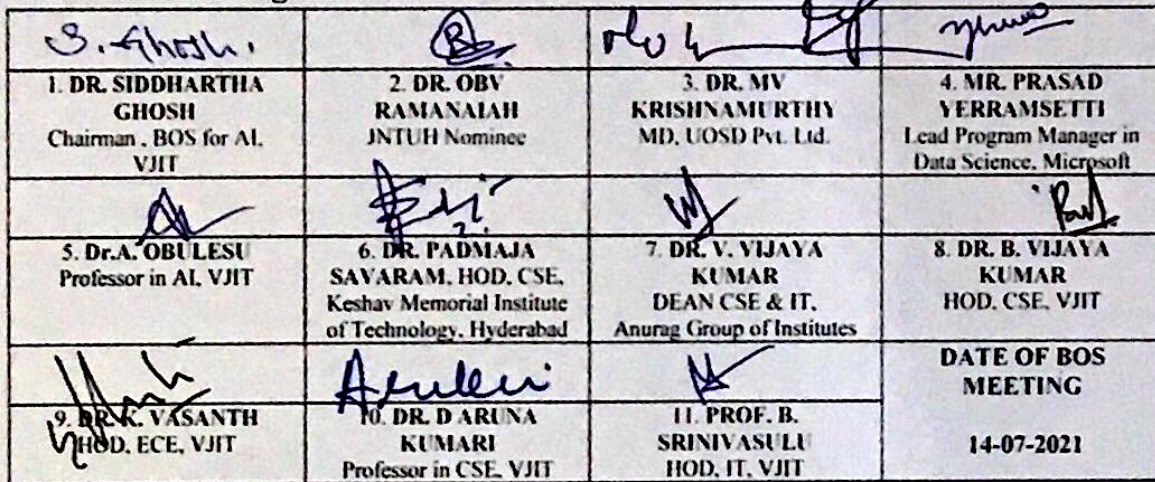 S. Ghosh.
1. DR. SIDDHARTHA
GHOSH
Chairman , BOS for AI,
VJIT
2. DR. OBV
RAMANAIAH
JNTUH Nominee
3. DR. MV
KRISHNAMURTHY
MD, UOSD Pvt. Ltd.
4. MR. PRASAD
YERRAMSETTI
Lead Program Manager in
Data Science, Microsoft
5. Dr.A. OBULESU
Professor in AI, VJIT
6. DR. PADMAJA
SAVARAM, HOD, CSE,
Keshav Memorial Institute
of Technology, Hyderabad
7. DR. V. VIJAYA
KUMAR
DEAN CSE & IT,
Anurag Group of Institutes
8. DR. B. VIJAYA
KUMAR
HOD, CSE, VJIT
9. DR. K. VASANTH
HOD, ECE, VJIT
10. DR. D ARUNA
KUMARI
Professor in CSE, VJIT
11. PROF. B.
SRINIVASULU
HOD, IT, VJIT
DATE OF BOS
MEETING
14-07-2021